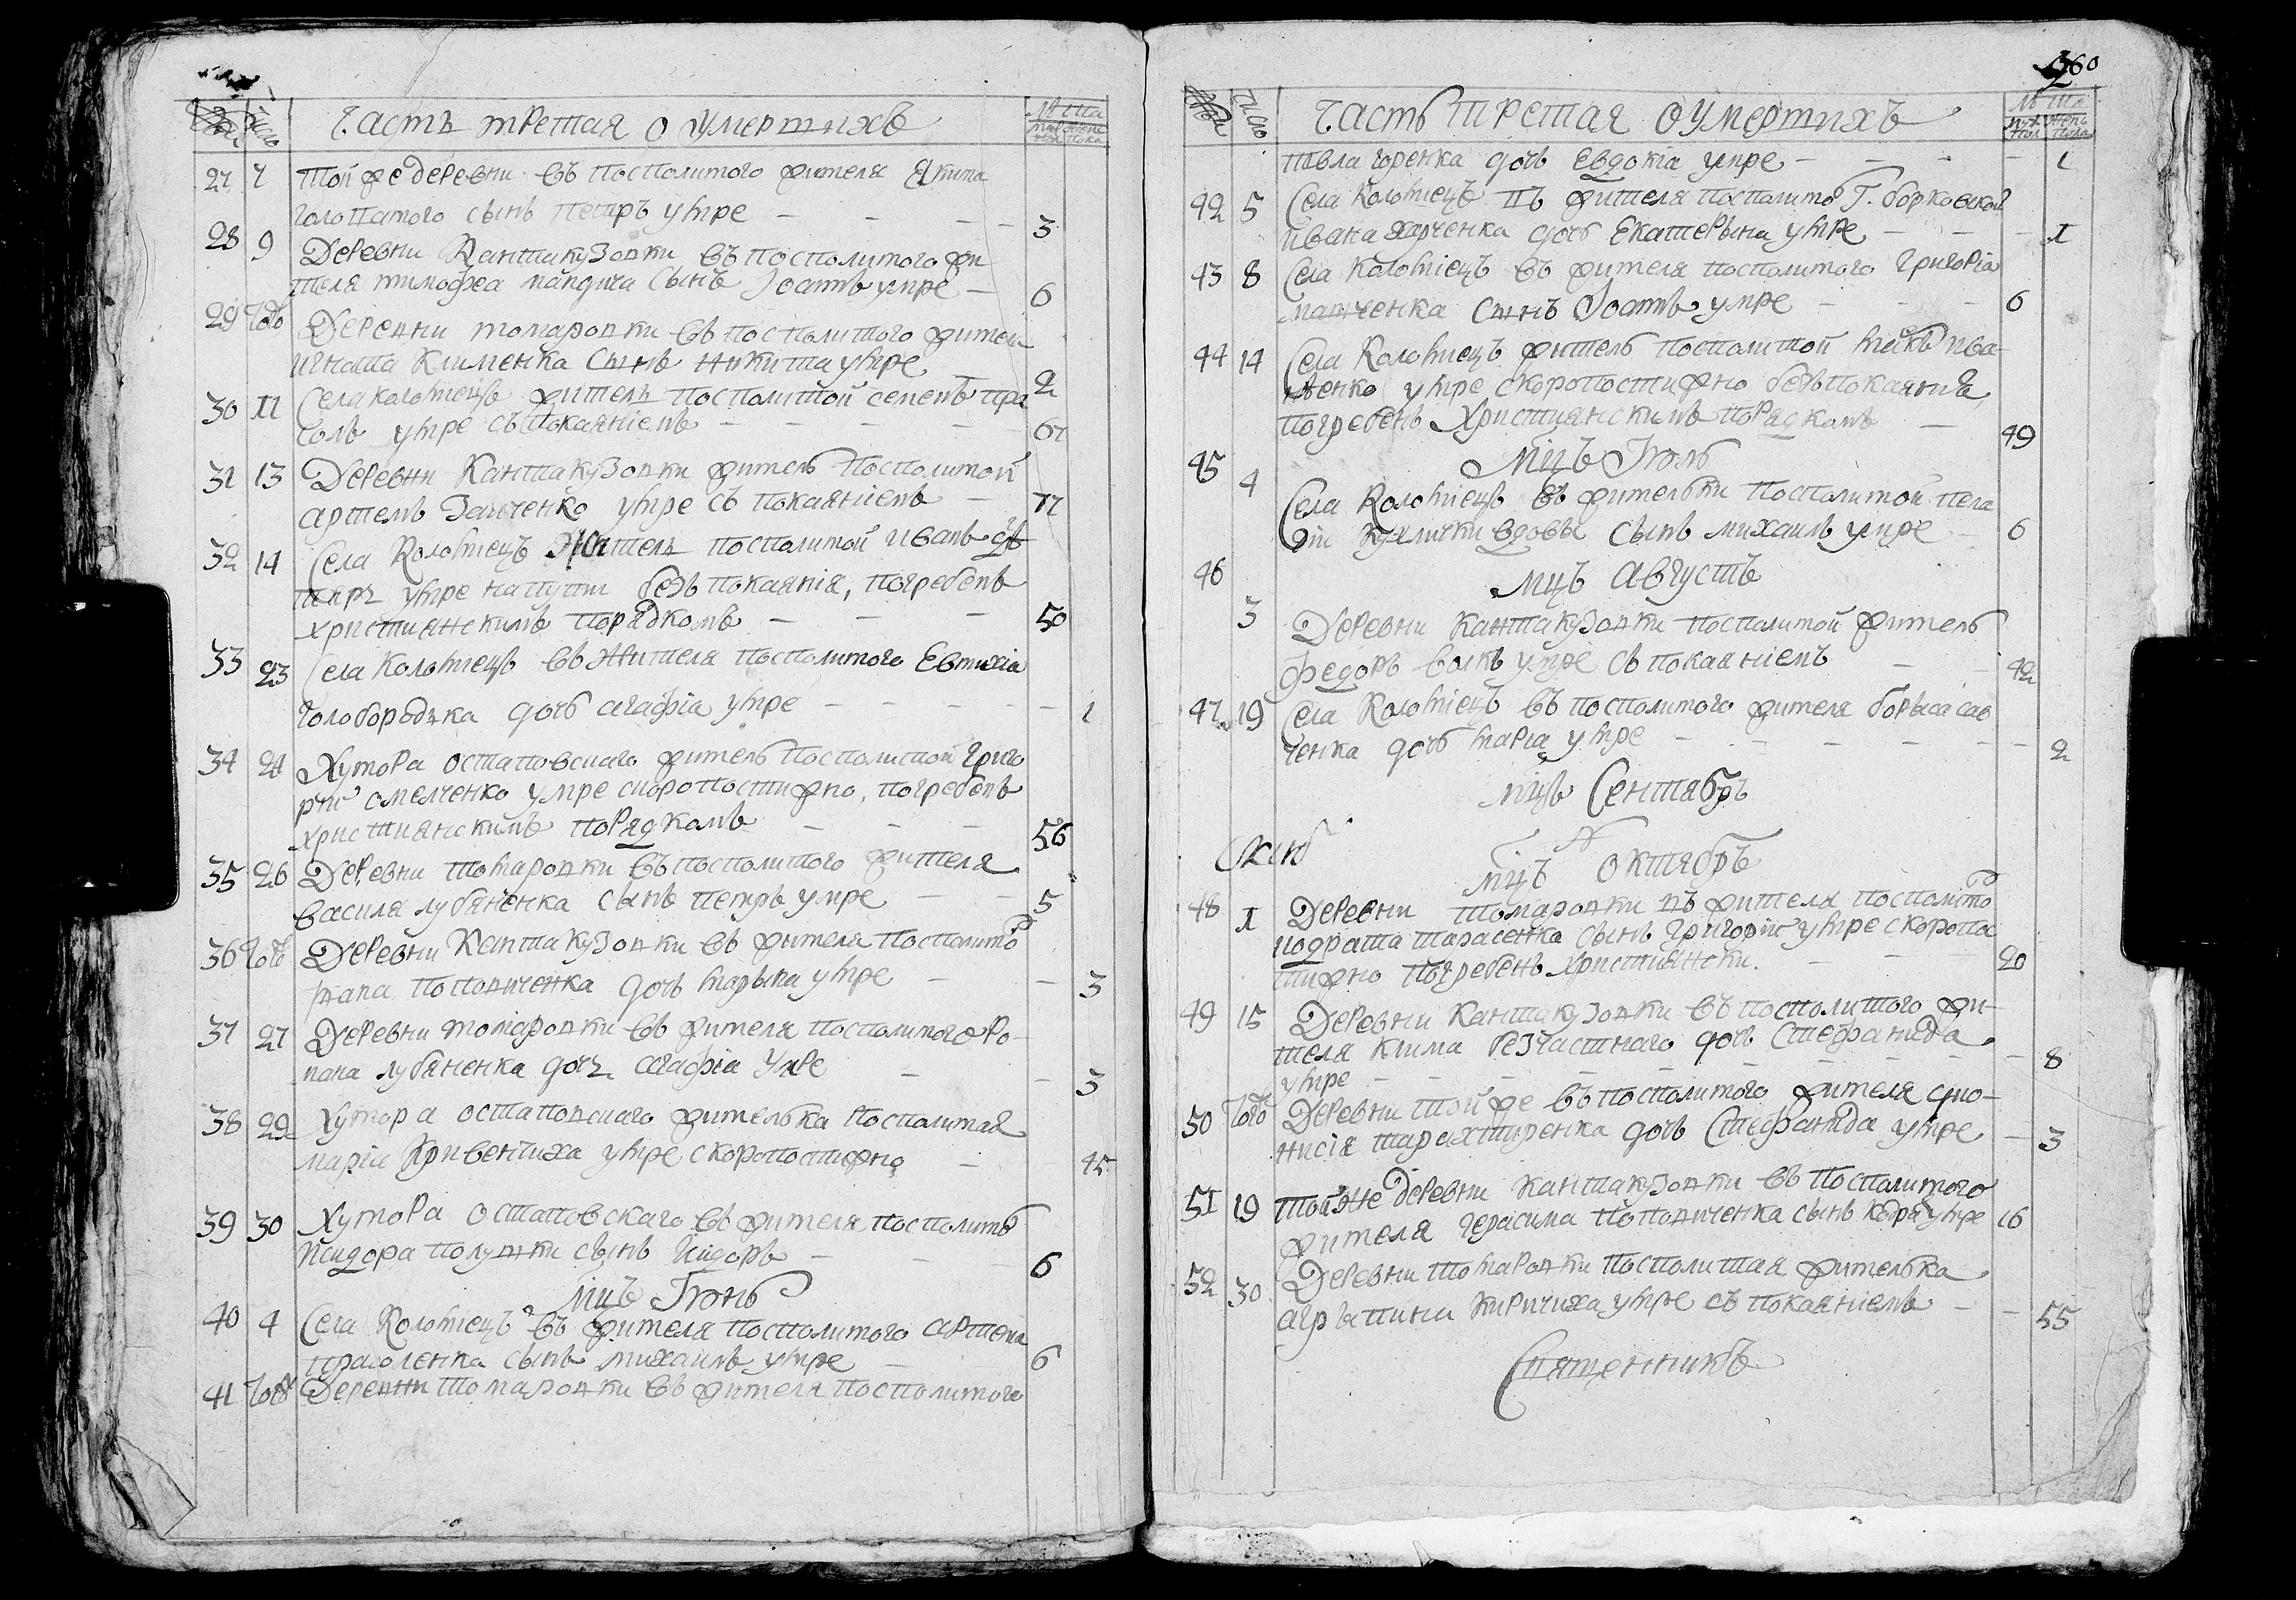 Часть третая о умертвихъ
Число
Лѣта
муж пол
женс пола
27 7 Той же деревни въ посполитого жителя Якима
голопатого сынъ Петръ умре 3
28 9 Деревни Кантакузовки въ посполитого жи-
теля тимофеа сынъ Іоаннъ умре 6
29 того Деревни томаровки въ посполитого жителя
игната Клименка сынъ никита умре 2
30 11 Села коломіецъ житель посполитой семенъ пра
солъ умре съ покаяніемъ 67
31 13 Деревни Кантакузовки житель посполитой
артемъ умре съ покаяніемъ 77
32 14 Села Коломіецъ Житель посполитой иванъ
умре на пути безъ покаянія, погребенъ
христианскимъ порядкомъ 50
33 23 Села Коломіецъ въ Жителя посполитого Евтихіа
голобородка дочь агафіа умре 1
34 24 Хутора остаповскаго житель посполитой григо
рій омелченко умре скоропостижно, погребенъ
христианскимъ порядкомъ 56
35 26 Деревни томаровки въ посполитого жителя
василя лубяненка сынъ петръ умре 5
36 того Деревни Кантакузовки въ жителя посполито
поповиченка дочь марына умре 3
37 27 Деревни томаровки въ жителя посполитого ро-
мана лубяненка дочь агафіа умре 3
38 29 Хутора остаповскаго жителька посполитая
маріа Кривенчиха умре скоропостижно 45
39 30 Хутора остаповскаго въ жителя посполито
исидора полупки сынъ исидоръ 6
мцъ Іюнь
40 4 Села Коломіецъ въ жителя посполитого артема
прасоленка сынъ михаилъ умре 6
41 того Деревни томаровки въ жителя посполитого
360
Часть третая о умертвихъ
Число
Лѣта
муж пол
женс пола
павла горенка дочь Евдокіа умре 1
42 5 Села Коломіецъ въ жителя посполито Г. борковской
ивана Харченка дочь Екатерына умре 1
43 8 Села Коломіецъ въ жителя посполитого григоріа
сынъ Іоаннъ умре 6
44 14 Села Коломіецъ житель посполитой ива-
ненко умре скоропостижно безъ покаянія,
погребенъ Христианскимъ порядкомъ 49
мцъ Іюль
45 4 Села Коломіецъ въ жительки посполитой пела
гіи вдовы сынъ михаилъ умре 6
мцъ августъ
46 3 Деревни Кантакузовки посполитой житель
федоръ волкъ умре съ покаяніемъ 42
47 19 Села Коломіецъ въ посполитого жителя борыса сав
ченка дочь маріа умре 2
мцъ Сентябрь
мцъ октябрь
48 1 Деревни томаровки въ жителя посполито
кодрата тарасенка сынъ григорій умре скоропос
тижно погребенъ христиански. 20
49 15 Деревни Кантакузовки въ посполитого жи-
теля клима безчастнаго дочь Стефанида
умре 8
50 того Деревни той же въ посполитого жителя дио-
нисія тарахтиренка дочь Стефанида умре 3
51 19 той же деревни кантакузовки въ посполитого
жителя герасима поповиченка сынъ умре 16
52 30 Деревни томаровки посполитая жителька
агрыпина Киричиха умре съ покаяніемъ 55
Священникъ